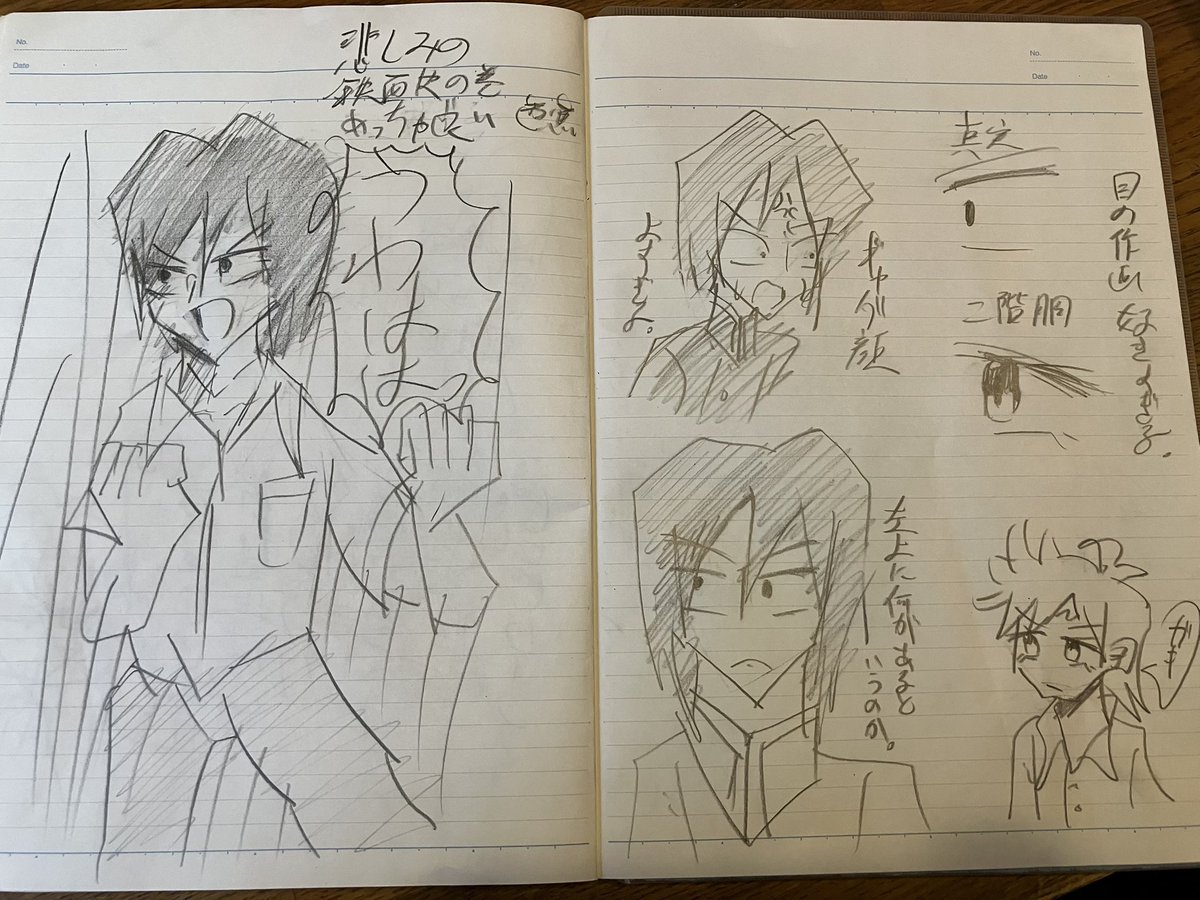 No.
Date
悲しみの
鉄面皮の巻
めっちゃ良い
うわはは
No.
Date
目の作画好きすぎる。
二階胴
ギャグ顔
よすぎる。
左上に何があると
いうのか。